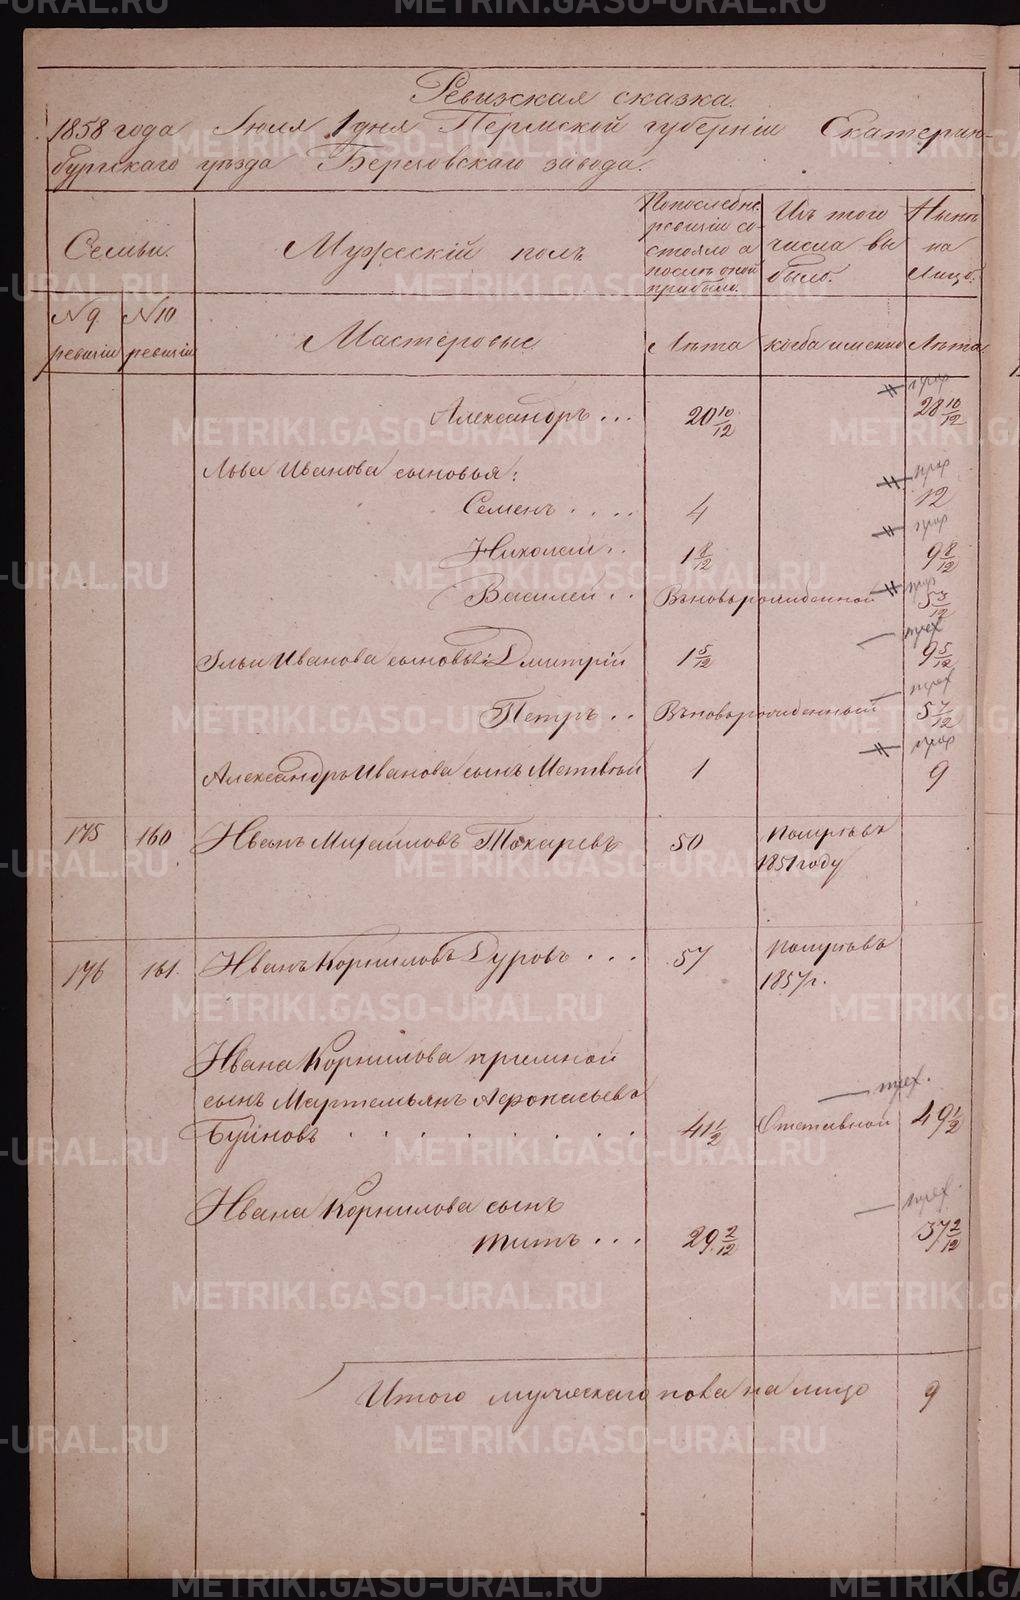 Ревижская сказка.
1858 года Іюля 1 дня Пермской губерніи Екатерин-
бургскаго уѣзда Березовскаго завода.
Семьи.
Мужескій полъ
По послѣдне.
ревизіи со-
стояло а
послѣ оной
прибыло.
Изъ того
числа вы
было.
Нынѣ
на
лицо.
№ 9
ревизіи
№ 10
ревизіи
Мастеровые
Лѣта
когда именно
Лѣта
Александръ . . . 20 10/12 28 10/12
Льва Иванова сыновья:
Семенъ . . . . 4 12
Николай . . 1 8/12 9 8/12
Василей . . Вновьрожденной 5 3/12
Ильи Иванова сыновья: Дмитрій 1 5/12 9 5/12
Петръ . . Вновьрожденный 5 7/12
Александръ Иванова сынъ Матвей 1 9
175 160 Иванъ Михаиловъ Токаревъ 50 Помръ въ
1851 году
176 161. Иванъ Корниловъ Дуровъ . . . 57
1857 г.
Ивана Корнилова приемной
сынъ Мартемьянъ Афонасьевъ
Буйновъ . . . . . . . . 41 1/2 Отставной 49 1/2
Ивана Корнилова сынъ
Титъ . . . 29 2/12 37 2/12
Итого мужескаго пола на лицо 9
METRIKI.GASO-URAL.RU